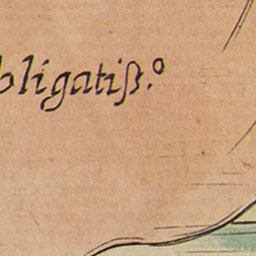 bligatiß.º